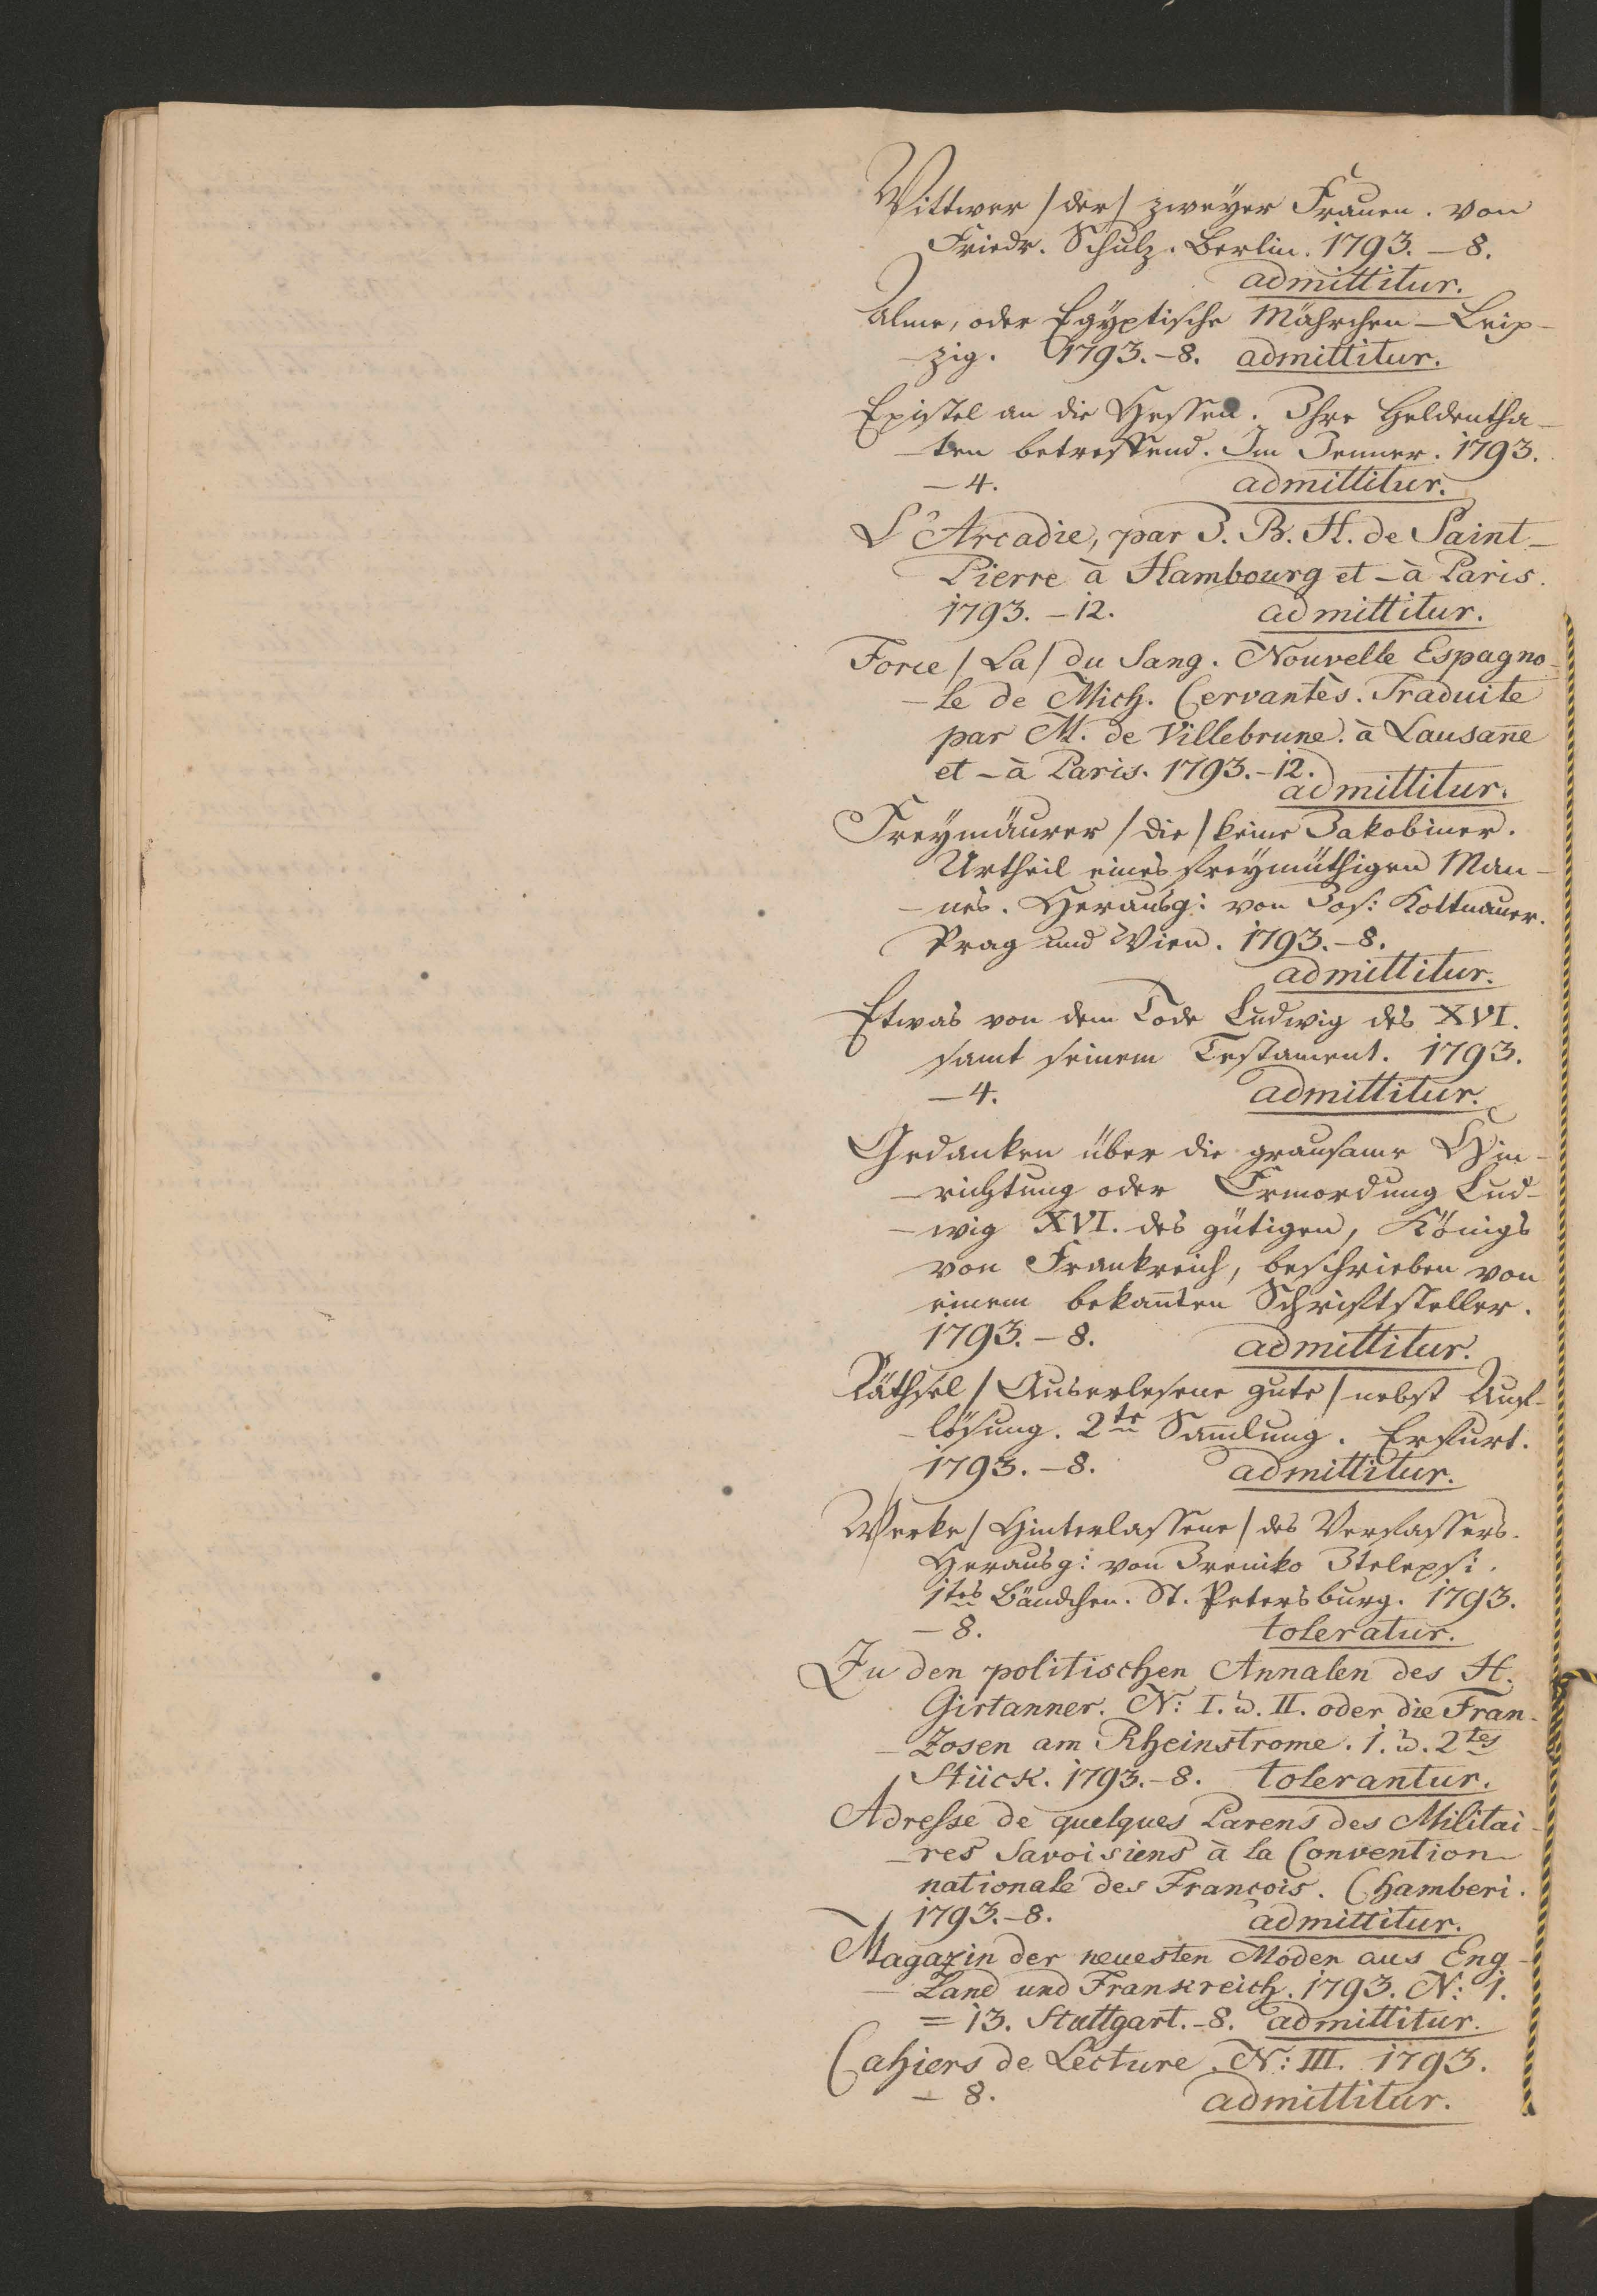 Wittwer /der/ zweyer Frauen. von
Friedr. Schulz. Berlin. 1793. – 8.
admittitur.
Alme, oder Egÿptische Mährchen – Leip-
-zig. 1793. – 8. admittitur.
Epistel an die Hessen. Ihre Heldentha-
-ten betreffend. Im Jenner. 1793.
– 4. admittitur.
L'Arcadie, par J. B. H. de Saint-
Pierre à Hambourg et – à Paris.
1793. – 12. admittitur.
Force /La/ du Sang. Nouvelle Espagno-
-le de Mich. Cervantès. Traduite
par M. de Villebrune. à Lausan̄e
et – à Paris. 1793. – 12.
admittitur.
Freÿmäurer /die/ keine Jakobiner.
Urtheil eines freÿmüthigen Man-
-nes. Herausg: von Jos: Kottnauer.
Prag und Wien. 1793. – 8.
admittitur.
Etwas von dem Tode Ludwig des XVI.
samt seinem Testament. 1793.
– 4. admittitur.
Gedanken über die grausame Hin-
-richtung oder Ermordung Lud-
-wig XVI. des gütigen, Königs
von Frankreich, beschrieben von
einem bekan̄ten Schriftsteller.
1793. – 8. admittitur.
Räthsel /Auserlesene gute/ nebst Auf-
-lösung. 2te Sam̄lung. Erfurt.
1793. – 8. admittitur.
Werke /Hinterlassene/ des Verfassers.
Herausg: von Jreniko
1tes Bändchen. St. Petersburg. 1793.
– 8. toleratur.
Zu den politischen Annalen des H.
Girtanner. N: I. u. II. oder die Fran-
-zosen am Rheinstrome. 1. u. 2tes
Stück. 1793. – 8. tolerantur.
Adresse de quelques Parens des Militai-
-res Savoisiens à la Convention
nationale des François. Chamberi.
1793. – 8. admittitur.
Magazin der neuesten Moden aus Eng-
-land und Frankreich. 1793. N: 1.
= 13. Stuttgart. – 8. admittitur.
Cahiers de Lecture. N: III. 1793.
– 8. admittitur.